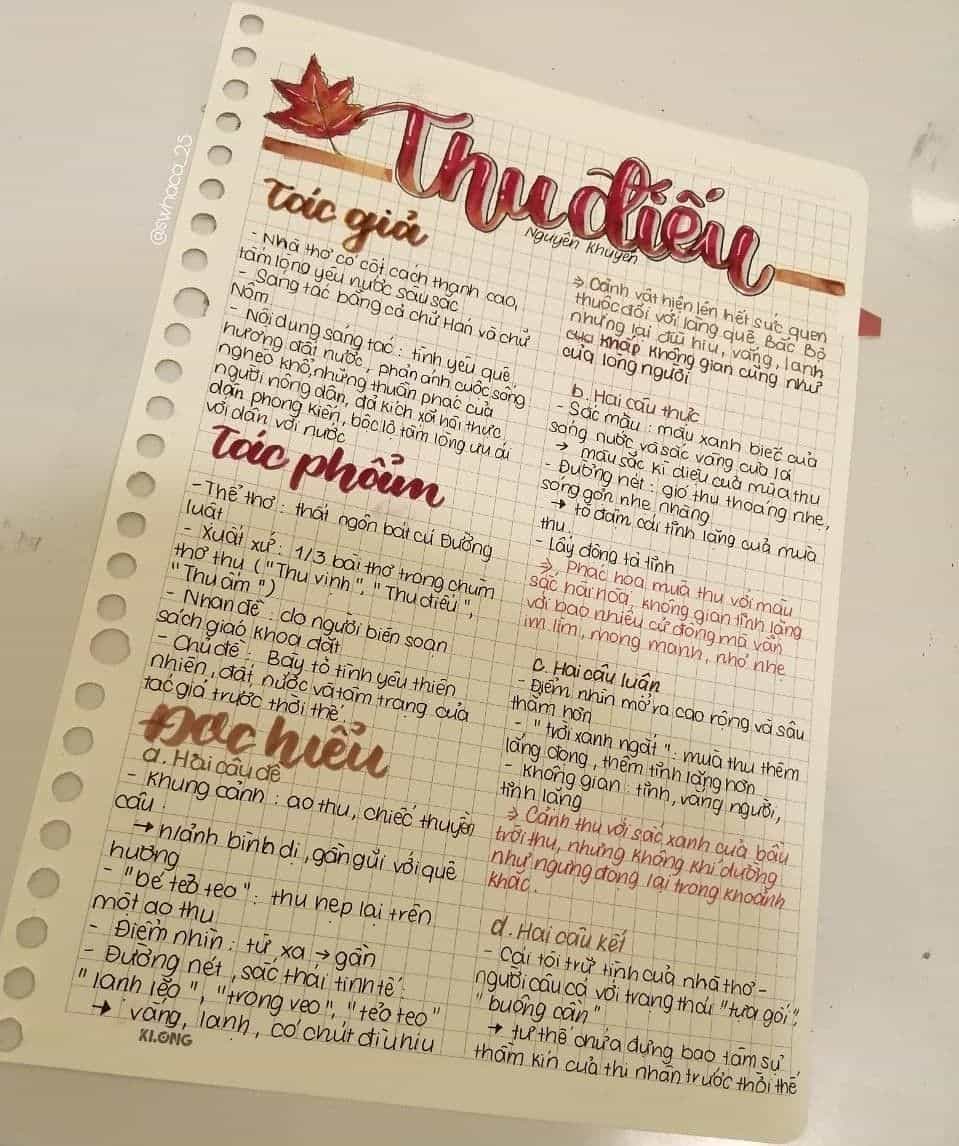 @swhaca_25
Thu điếu
Nguyễn Khuyến
Tác giả
- Nhà thơ có cốt cách thanh cao,
tấm lòng yêu nước sâu sắc
- Sáng tác bằng cả chữ Hán và chữ
Nôm
- Nội dung sáng tác : tình yêu quê
hương đất nước, phản ánh cuộc sống
nghèo khổ, những thuần phác của
người nông dân, đả kích xã hội thực
dân phong kiến, bộc lộ tấm lòng ưu ái
với dân với nước
Tác phẩm
- Thể thơ : thất ngôn bát cú Đường
luật
- Xuất xứ : 1/3 bài thơ trong chùm
thơ thu ("Thu vịnh", "Thu điếu",
"Thu ẩm")
- Nhan đề : do người biên soạn
sách giáo khoa đặt
- Chủ đề : Bày tỏ tình yêu thiên
nhiên, đất nước và tâm trạng của
tác giả trước thời thế
Đọc hiểu
a. Hai câu đề
- Khung cảnh : ao thu, chiếc thuyền
câu
→ h/ảnh bình dị, gần gũi với quê
hương
- "bé tẻo teo" : thu hẹp lại trên
một ao thu
- Điểm nhìn : từ xa → gần
- Đường nét, sắc thái tinh tế :
"lạnh lẽo", "trong veo", "tẻo teo"
→ vắng, lạnh, có chút đìu hiu
KLONG
⇒ Cảnh vật hiện lên hết sức quen
thuộc đối với làng quê Bắc Bộ
nhưng lại đìu hiu, vắng, lạnh
của khắp không gian cũng như
của lòng người
b. Hai câu thực
- Sắc màu : màu xanh biếc của
sóng nước và sắc vàng của lá
→ màu sắc kì diệu của mùa thu
- Đường nét : gió thu thoảng nhẹ,
sóng gợn nhẹ nhàng
→ tô đậm cái tĩnh lặng của mùa
thu
- Lấy động tả tĩnh
⇒ Phác họa mùa thu với màu
sắc hài hòa, không gian tĩnh lặng
với bao nhiêu cử động mà vẫn
im lìm, mong manh, nhỏ nhẹ
c. Hai câu luận
- Điểm nhìn mở ra cao rộng và sâu
thẳm hơn
- "trời xanh ngắt" : mùa thu thêm
lắng đọng, thêm tĩnh lặng hơn
- Không gian : tĩnh, vắng người,
tĩnh lặng
⇒ Cảnh thu với sắc xanh của bầu
trời thu, nhưng không khí dường
như ngưng đọng lại trong khoảnh
khắc.
d. Hai câu kết
- Cái tôi trữ tình của nhà thơ -
người câu cá với trạng thái "tựa gối",
"buông cần"
→ tư thế chứa đựng bao tâm sự
thầm kín của thi nhân trước thời thế